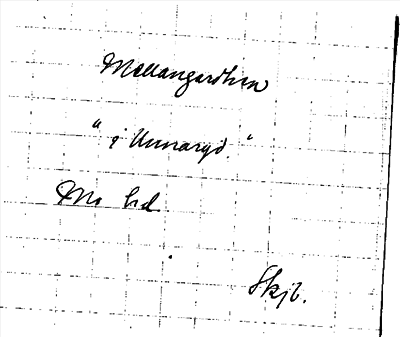 Mellangardhen
" i Unnaryd. "
Mo hd
Skjb.